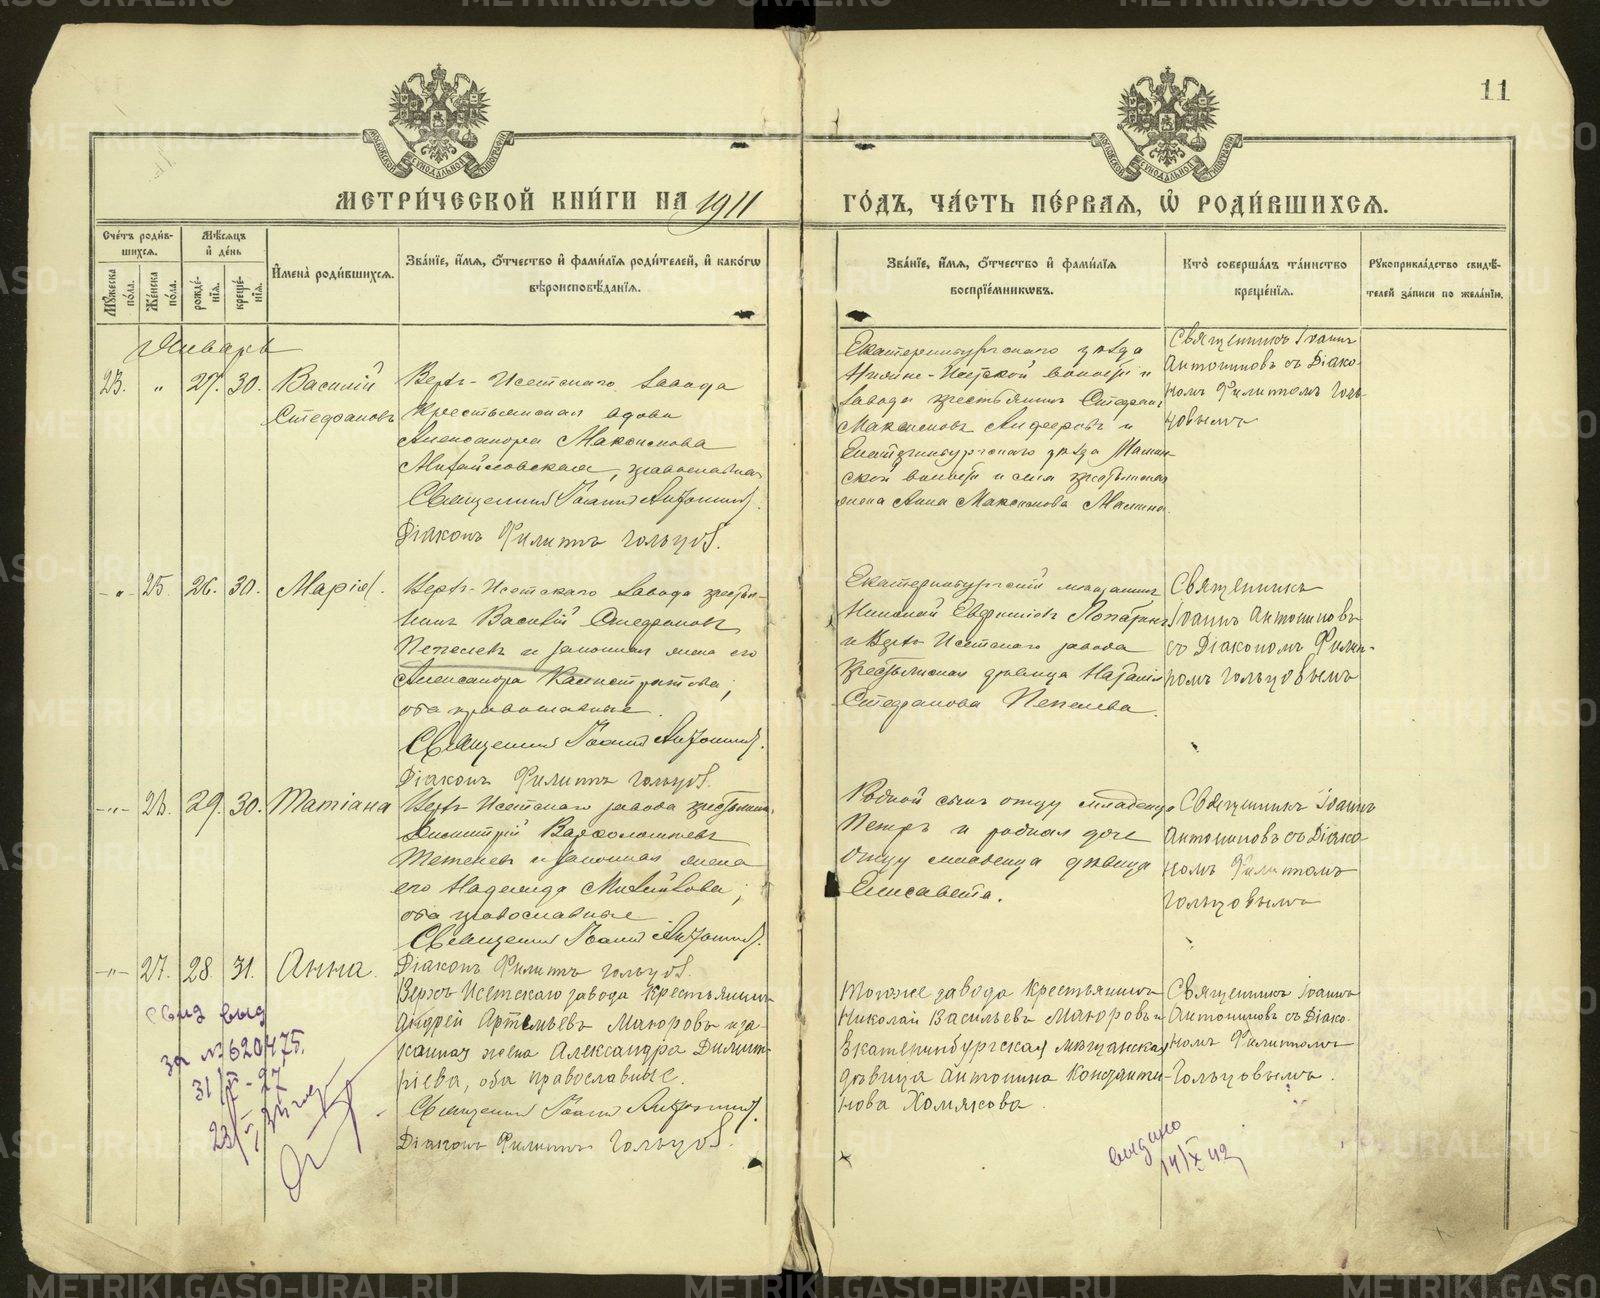 11
МЕТРИ́ЧЕСКОЙ КНИ́ГИ НА 1911 ГО́ДЪ, ЧА́СТЬ ПЕ́РВАЯ, Ѽ РОДИ́ВШИХСЯ.
Сче́тъ роди́в-
шихся.
Мѣ́сяцъ
и҆ де́нь
Мꙋ́жеска по́ла.
Же́нска по́ла.
рожде́-
нїя.
креще́-
нїя.
И҆мена̀ роди́вшихся.
Зва́нїе, и҆́мя, ѻ҆́тчество и҆ фами́лїя роди́телей, и҆ како́гѡ
вѣроисповѣ́данїя.
Зва́нїе, и҆́мя, ѻ҆́тчество и҆ фами́лїя
воспрїе́мникѡвъ.
Кто̀ соверша́лъ та́инство
креще́нїя.
Рꙋкоприкла́дство свидѣ́-
телей за́писи по жела́нїю.
Январь
23. " 27. 30.
Василій
Стефановъ
Верхъ-Исетскаго завода
крестьянская вдова
Александра Максимова
Михайловская, православная
Священникъ Іоаннъ Антонинов.
Діаконъ Филиппъ Гольцов.
Екатеринбургскаго уѣзда
завода крестьянинъ Стефанъ
Максимовъ и
Екатеринбургскаго уѣзда
ской волости и села крестьянская
жена Анна Максимова
Священникъ Іоаннъ
Антониновъ съ Діако-
номъ Филиппомъ Голь-
цовымъ
" 25. 26. 30.
Марія.
Верхъ-Исетскаго завода крестья-
нинъ Василій Стефановъ
Пепелевъ и законная жена его
Александра Каллистратова;
оба православные.
Священникъ Іоаннъ Антонинов.
Діаконъ Филиппъ Гольцов.
Екатеринбургскій мѣщанинъ
Николай Евфиміевъ Лопатинъ
и Верхъ-Исетскаго завода
крестьянская дѣвица Наталія
Стефанова Пепелева.
Священникъ
Іоаннъ Антониновъ
съ Діакономъ Филип-
помъ Гольцовымъ
" 26. 29. 30.
Татіана
Верхъ-Исетскаго завода крестьянинъ
Димитрій Варфоломеевъ
и законная жена
его Надежда Михайлова;
оба православные
Священникъ Іоаннъ Антонинов.
Діаконъ Филиппъ Гольцов.
Родной сынъ отцу младенца
Петръ и родная дочь
отцу младенца дѣвица
Елисавета.
Священникъ Іоаннъ
Антониновъ съ Діако-
номъ Филиппомъ
Гольцовымъ
" 27. 28. 31.
Анна.
Верхъ-Исетскаго завода крестьянинъ
Андрей Артемьевъ Маюровъ и за-
конная жена Александра Димит-
ріева, оба православные.
Священникъ Іоаннъ Антонинов.
Діаконъ Филиппъ Гольцов.
Тогоже завода крестьянинъ
Николай Васильевъ Маюровъ и
Екатеринбургская мѣщанская
дѣвица Антонина Константи-
нова Хомякова.
Священникъ Іоаннъ
Антониновъ съ Діако-
номъ Филиппомъ
Гольцовымъ.
свид выд
за № 620475.
выдано
14/X 42
METRIKI.GASO-URAL.RU